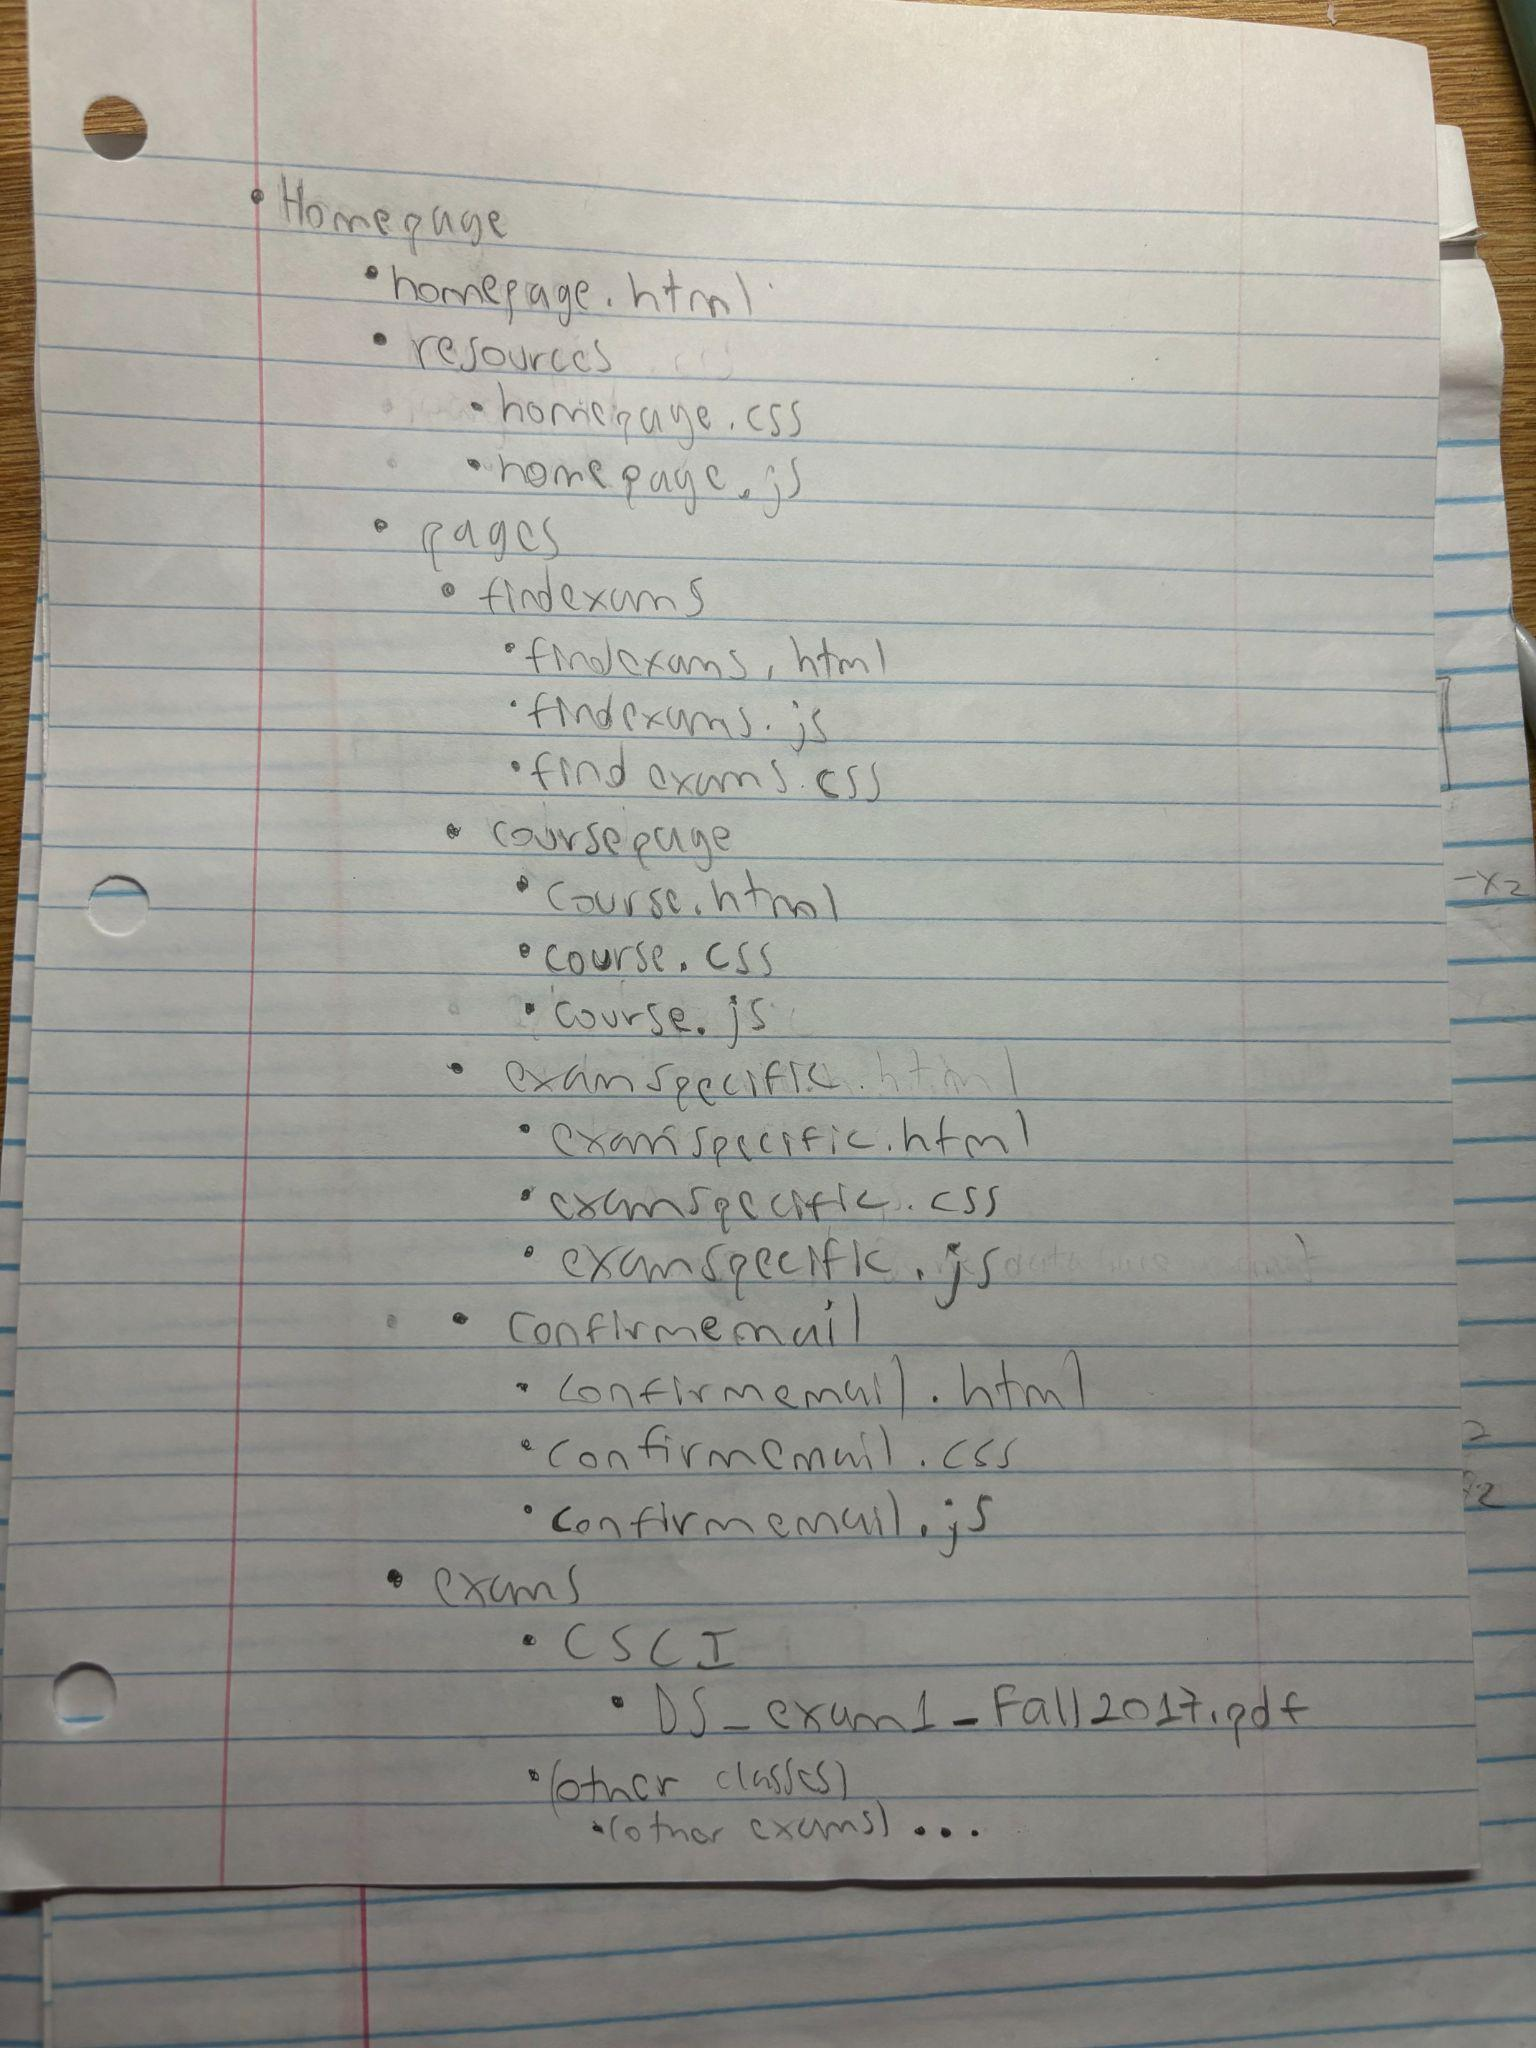 • Homepage
• homepage.html
• resources
• homepage.css
• homepage.js
• pages
• findexams
• findexams.html
• findexams.js
• findexams.css
• coursepage
• course.html
• course.css
• course.js
• examspecific
• examspecific.html
• examspecific.css
• examspecific.js
• confirmemail
• confirmemail.html
• confirmemail.css
• confirmemail.js
• exams
• CSCI
• DS_exam1_Fall2017.pdf
• (other classes)
• (other exams) •••
-x2
2
x2